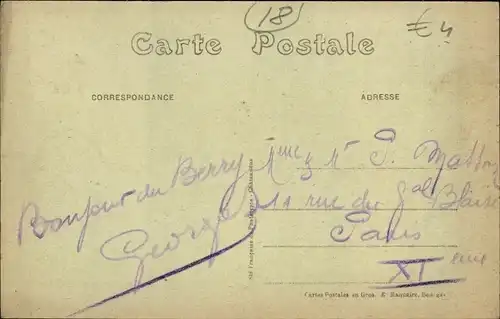 (18)
€4
Carte Postale
CORRESPONDANCE
ADRESSE
Bonjour du Berry
Georges
Mme & Mr P.
11 rue du Gal Blaise
Paris
XIeme
Cartes Postales en Gros. E. Bourges